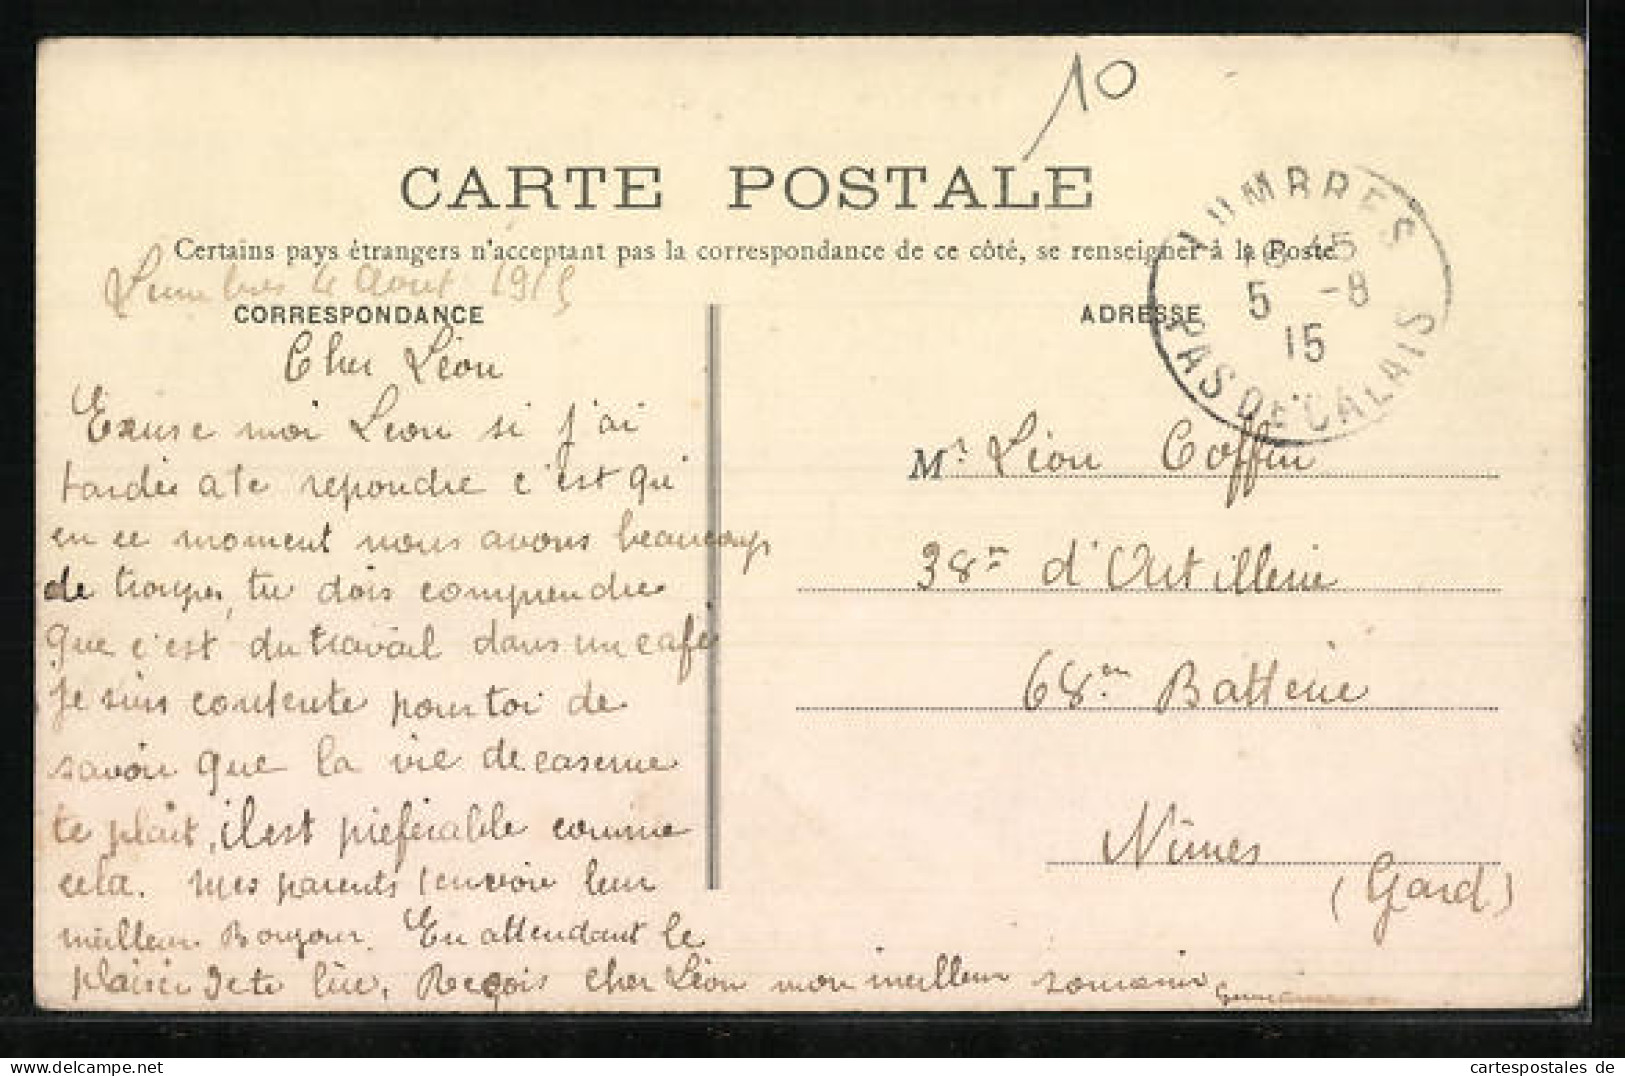 10
CARTE POSTALE
Certains pays étrangers n'acceptent pas la correspondance de ce côté, se renseigner à la Poste
LUMBRES
5 -8
15
PAS DE CALAIS
Lumbres 4 Aout 1915
CORRESPONDANCE
ADRESSE
Cher Léon
Excuse moi Leon si j'ai
tardée a te repondre c'est qui
en ce moment nous avons beaucoup
de troupes, tu dois comprendre
que c'est du travail dans un café
Je suis contente pour toi de
savoir que la vie de caserne
te plait, il est préferable comme
cela. Mes parents t'envoie leur
meilleur Bonjour. En attendant le
plaisir de te lire, Reçois cher Léon mon meilleur souvenir
Mr Léon Coffin
38me d'Artillerie
68me Batterie
Nîmes
(Gard)
www.cartespostales.de